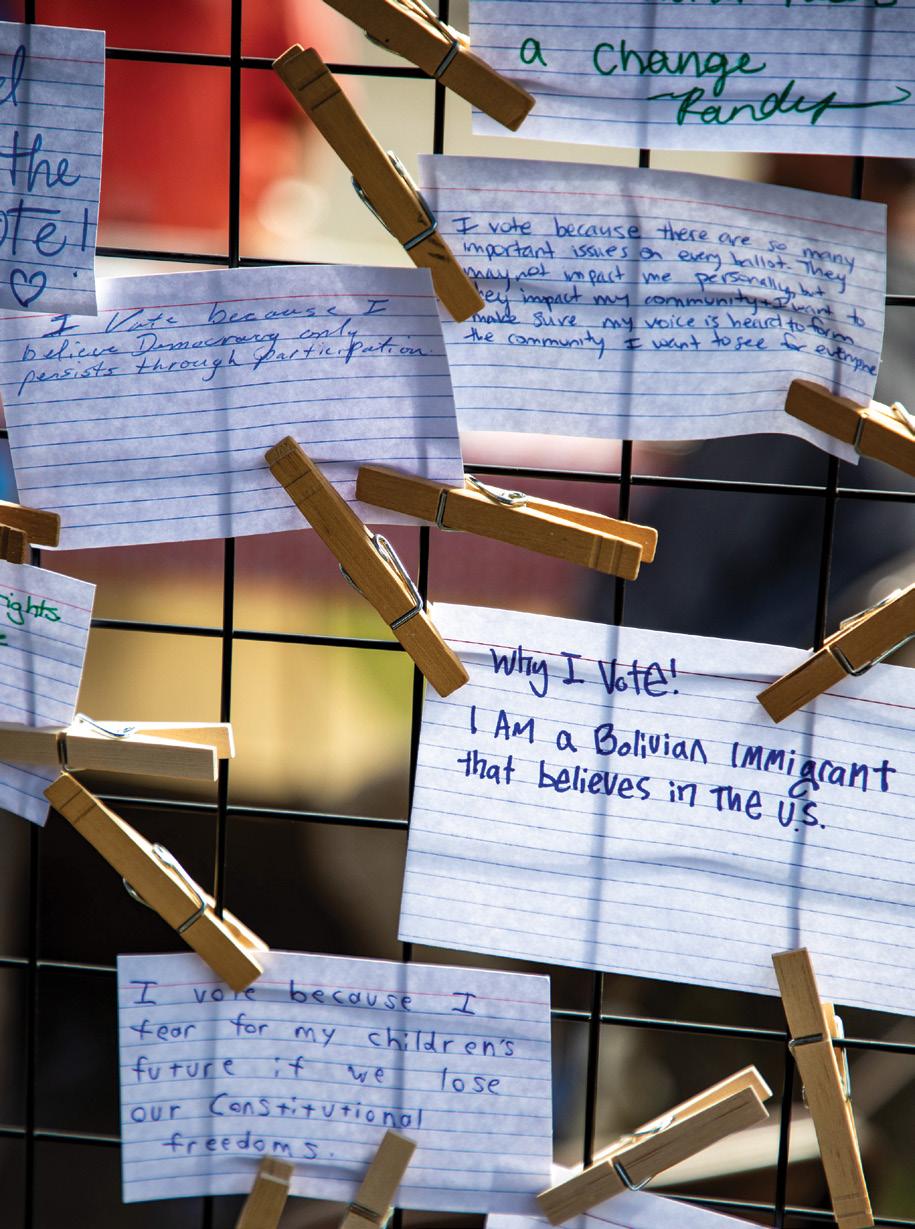 a change
Randy
the
vote!
I vote because there are so many
important issues on every ballot. They
may not impact me personally, but
they impact my community & I want to
make sure my voice is heard to form
the community I want to see for everyone
I Vote because I
believe Democracy only
persists through participation.
rights
Why I Vote!
I AM a Bolivian Immigrant
that believes in The U.S.
I vote because I
fear for my children's
future if we lose
our Constitutional
freedoms.